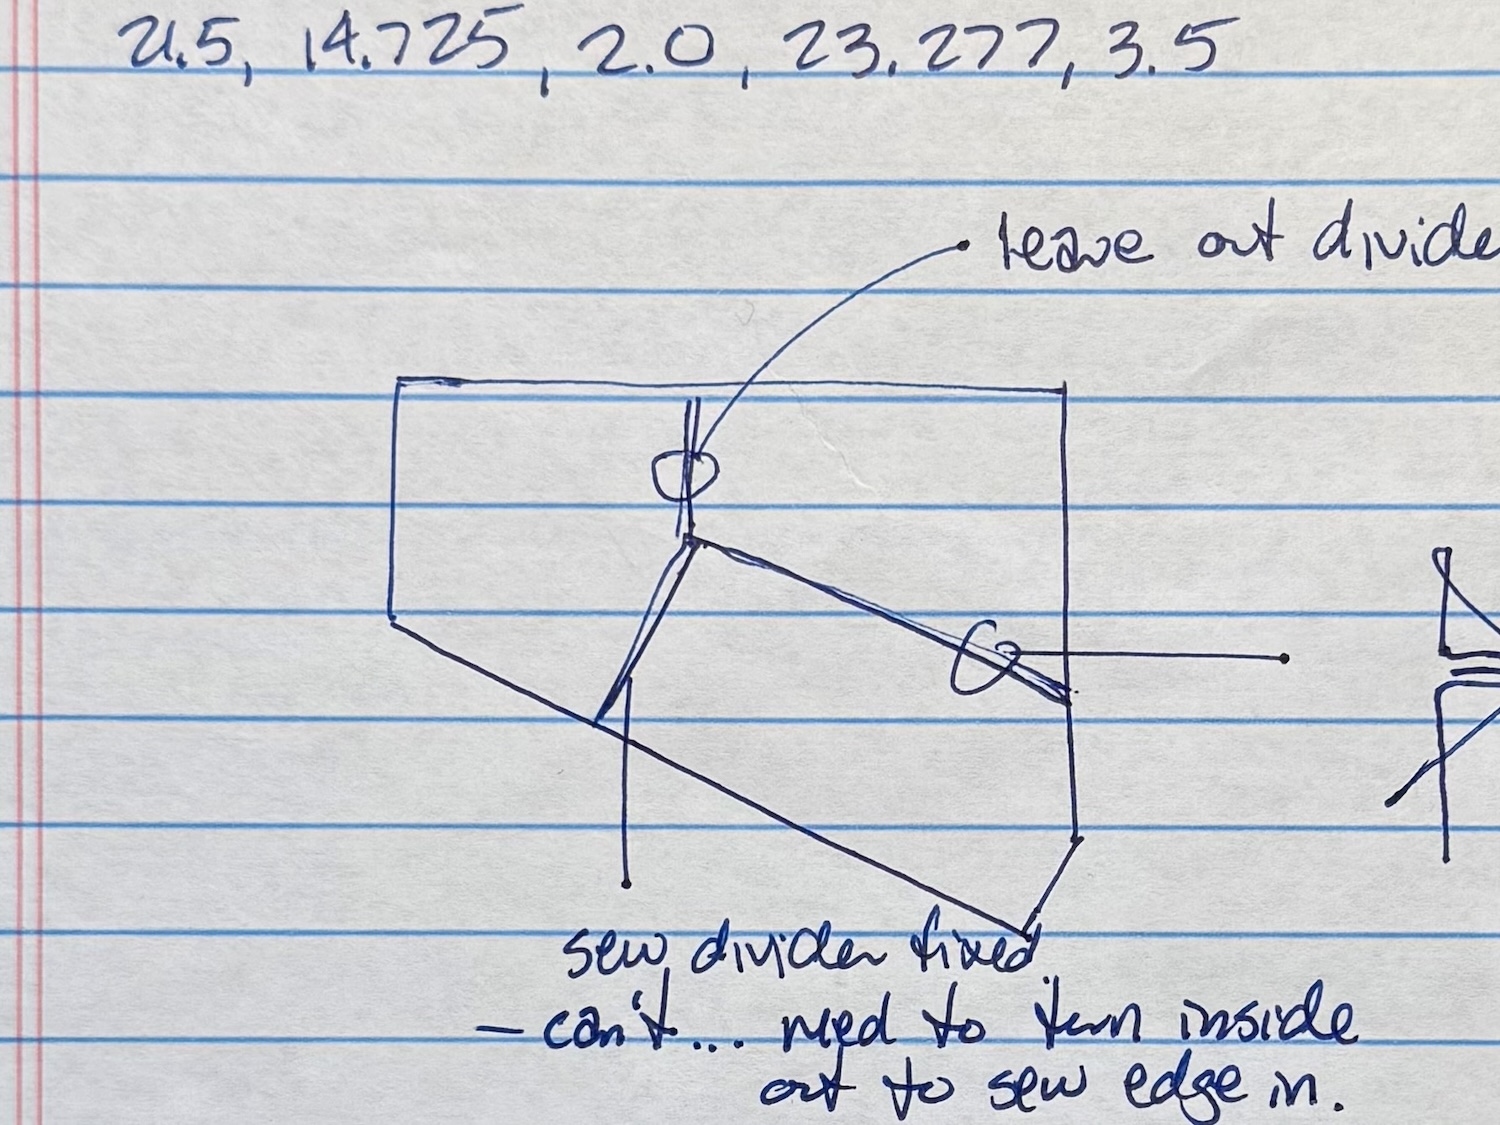 21.5, 14.725, 2.0, 23.277, 3.5
leave out divide
sew divider fixed
- can't... need to turn inside
out to sew edge in.